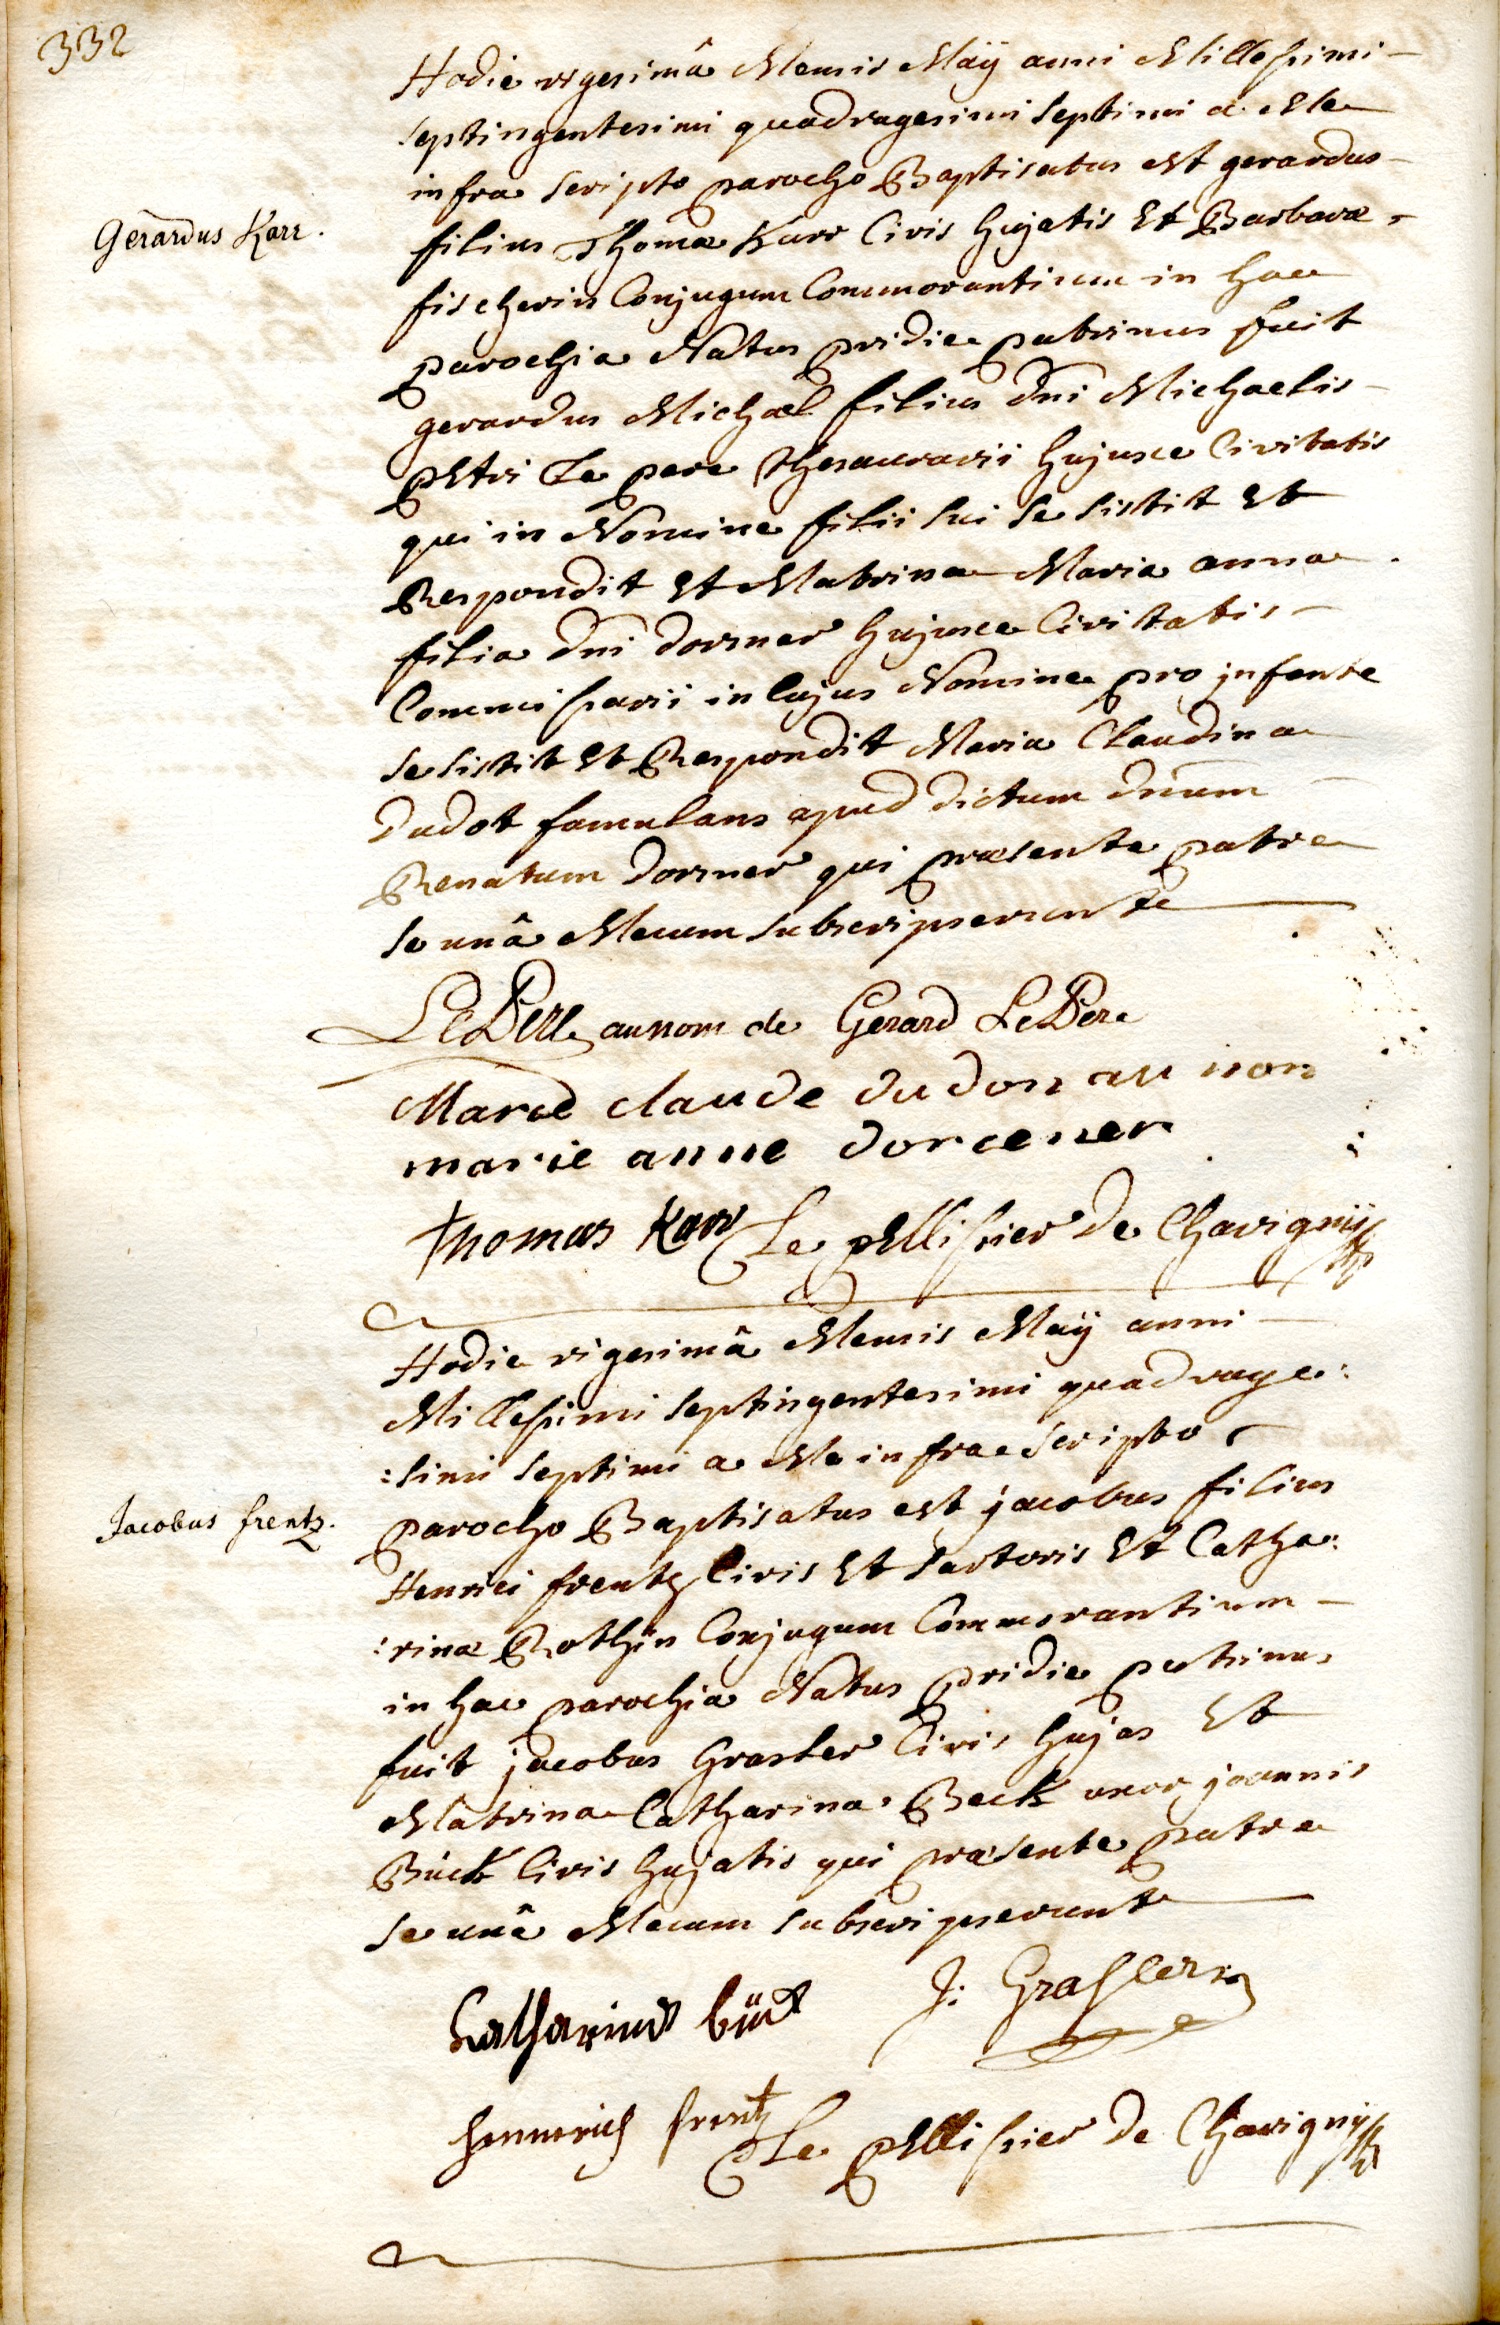 332
Hodie vigesimâ Mensis Maÿ anni Millesimi
septingentesimi quadragesimi septimi a Me
infra scripto parocho Baptisatus est gerardus
Gerardus Karr.
filius Thomæ Karr Civis hujatis Et Barbaræ
fischerin Conjugum Commorantium in hac
parochia Natus pridie patrinus fuit
gerardus Michael filius dni Michaelis
petri Le pere thesaurarii hujusce Civitatis
qui in Nomine filii sui se sistit Et
Respondit Et Matrina Maria anna
filia dni dorsner hujusce Civitatis
Commissarii in Cujus Nomine pro jnfante
se sistit Et Respondit Maria Claudina
dudot famulans apud dictum dnum
Renatum dorsner qui præsente patre
se unâ Mecum subscripserunt
Le Pere au nom de Gerard Le Pere
Marie claude dudon au nom
marie anne dorcener
Thomas Karr Le pellissier de Chavignÿ
Hodie vigesimâ Mensis Maÿ anni
Millesimi septingentesimi quadrage:
:simi septimi a Me infra scripto
Jacobus frentz.
parocho Baptisatus est jacobus filius
Henrici frentz Civis Et sartoris Et Catha:
:rinæ Rothin Conjugum Commorantium
in hac parochia Natus pridie patrinus
fuit jacobus Grasler Civis hujas Et
Matrina Catharina Beck uxor joannis
Bück Civis hujatis qui præsente patre
se unâ Mecum subscripserunt
Katharina bück J: Grasler
Hennerich frentz Le pellissier de Chavignÿ